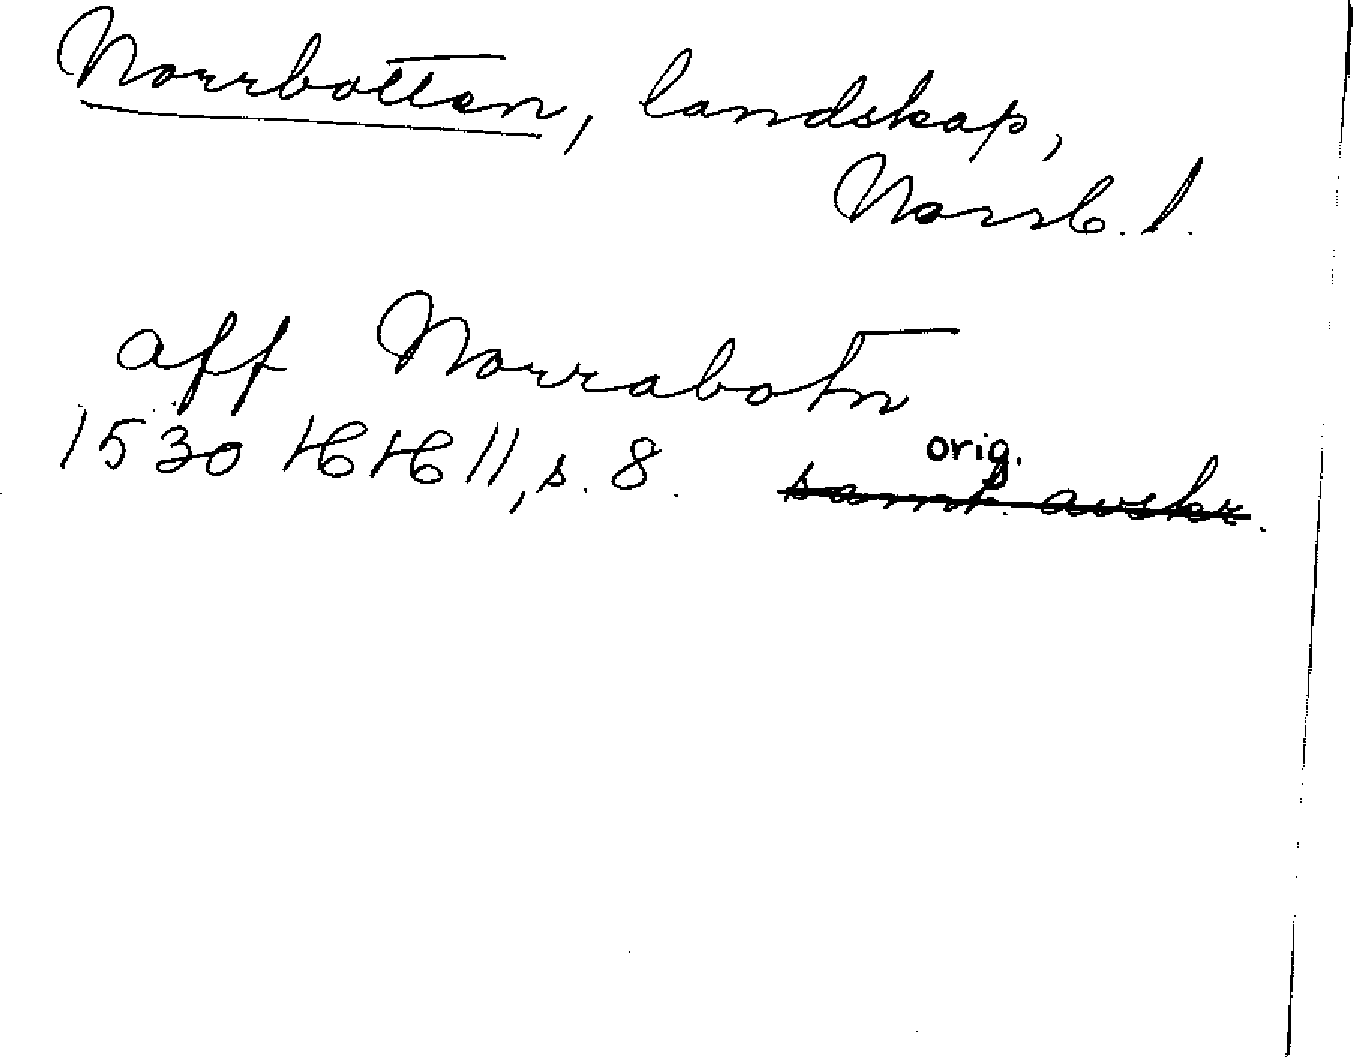 Norrbotten, landskap,
Norrb. l.
aff Norrabotn
1530 HH 11, s. 8. orig.
samt. avskr.